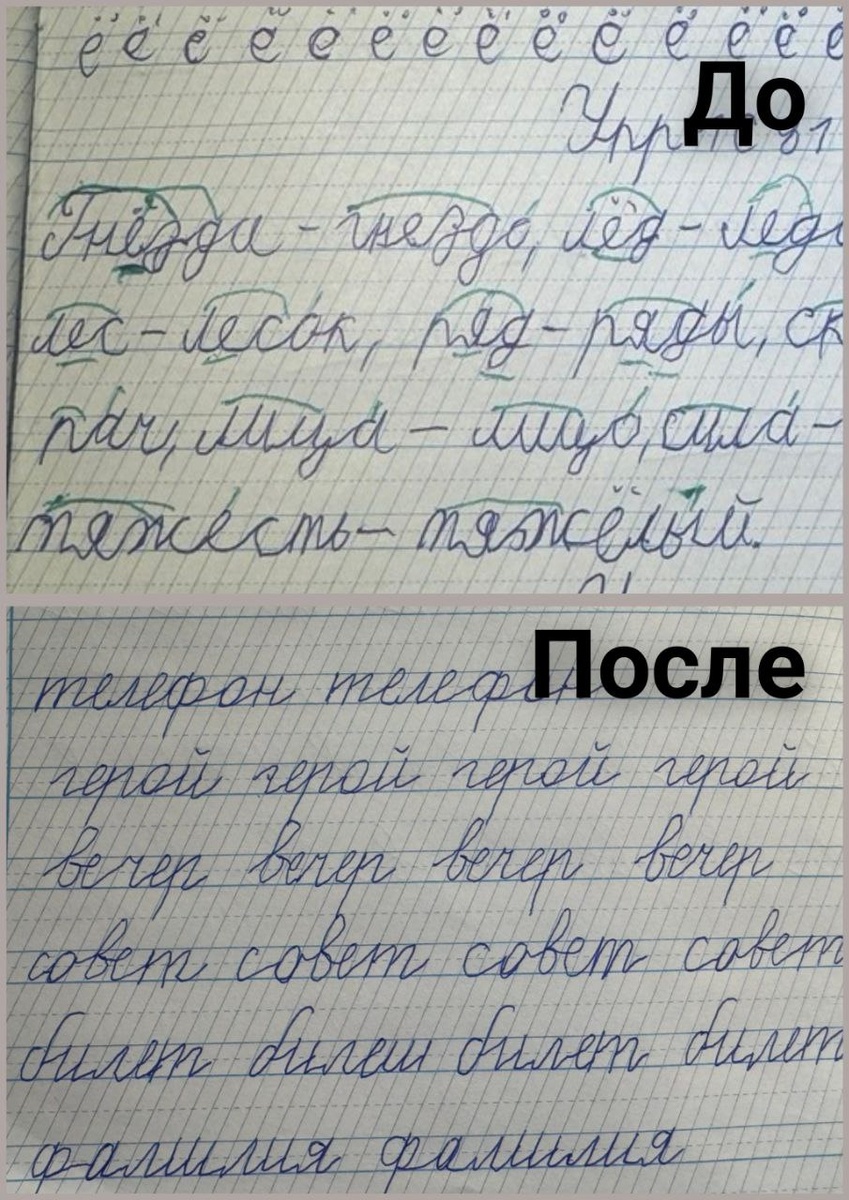 ё ё ё ё ё ё ё ё ё ё ё ё ё ё
До
Гнёзда - гнездо́, лёд - лед
лес - лесо́к, ряд - ряды́, ск
рач, лица - лицо́, сила -
тяжесть - тяжёлый.
После
телефон телефон
герой герой герой герой
вечер вечер вечер вечер
совет совет совет совет
билет билеш билет билет
фамилия фамилия